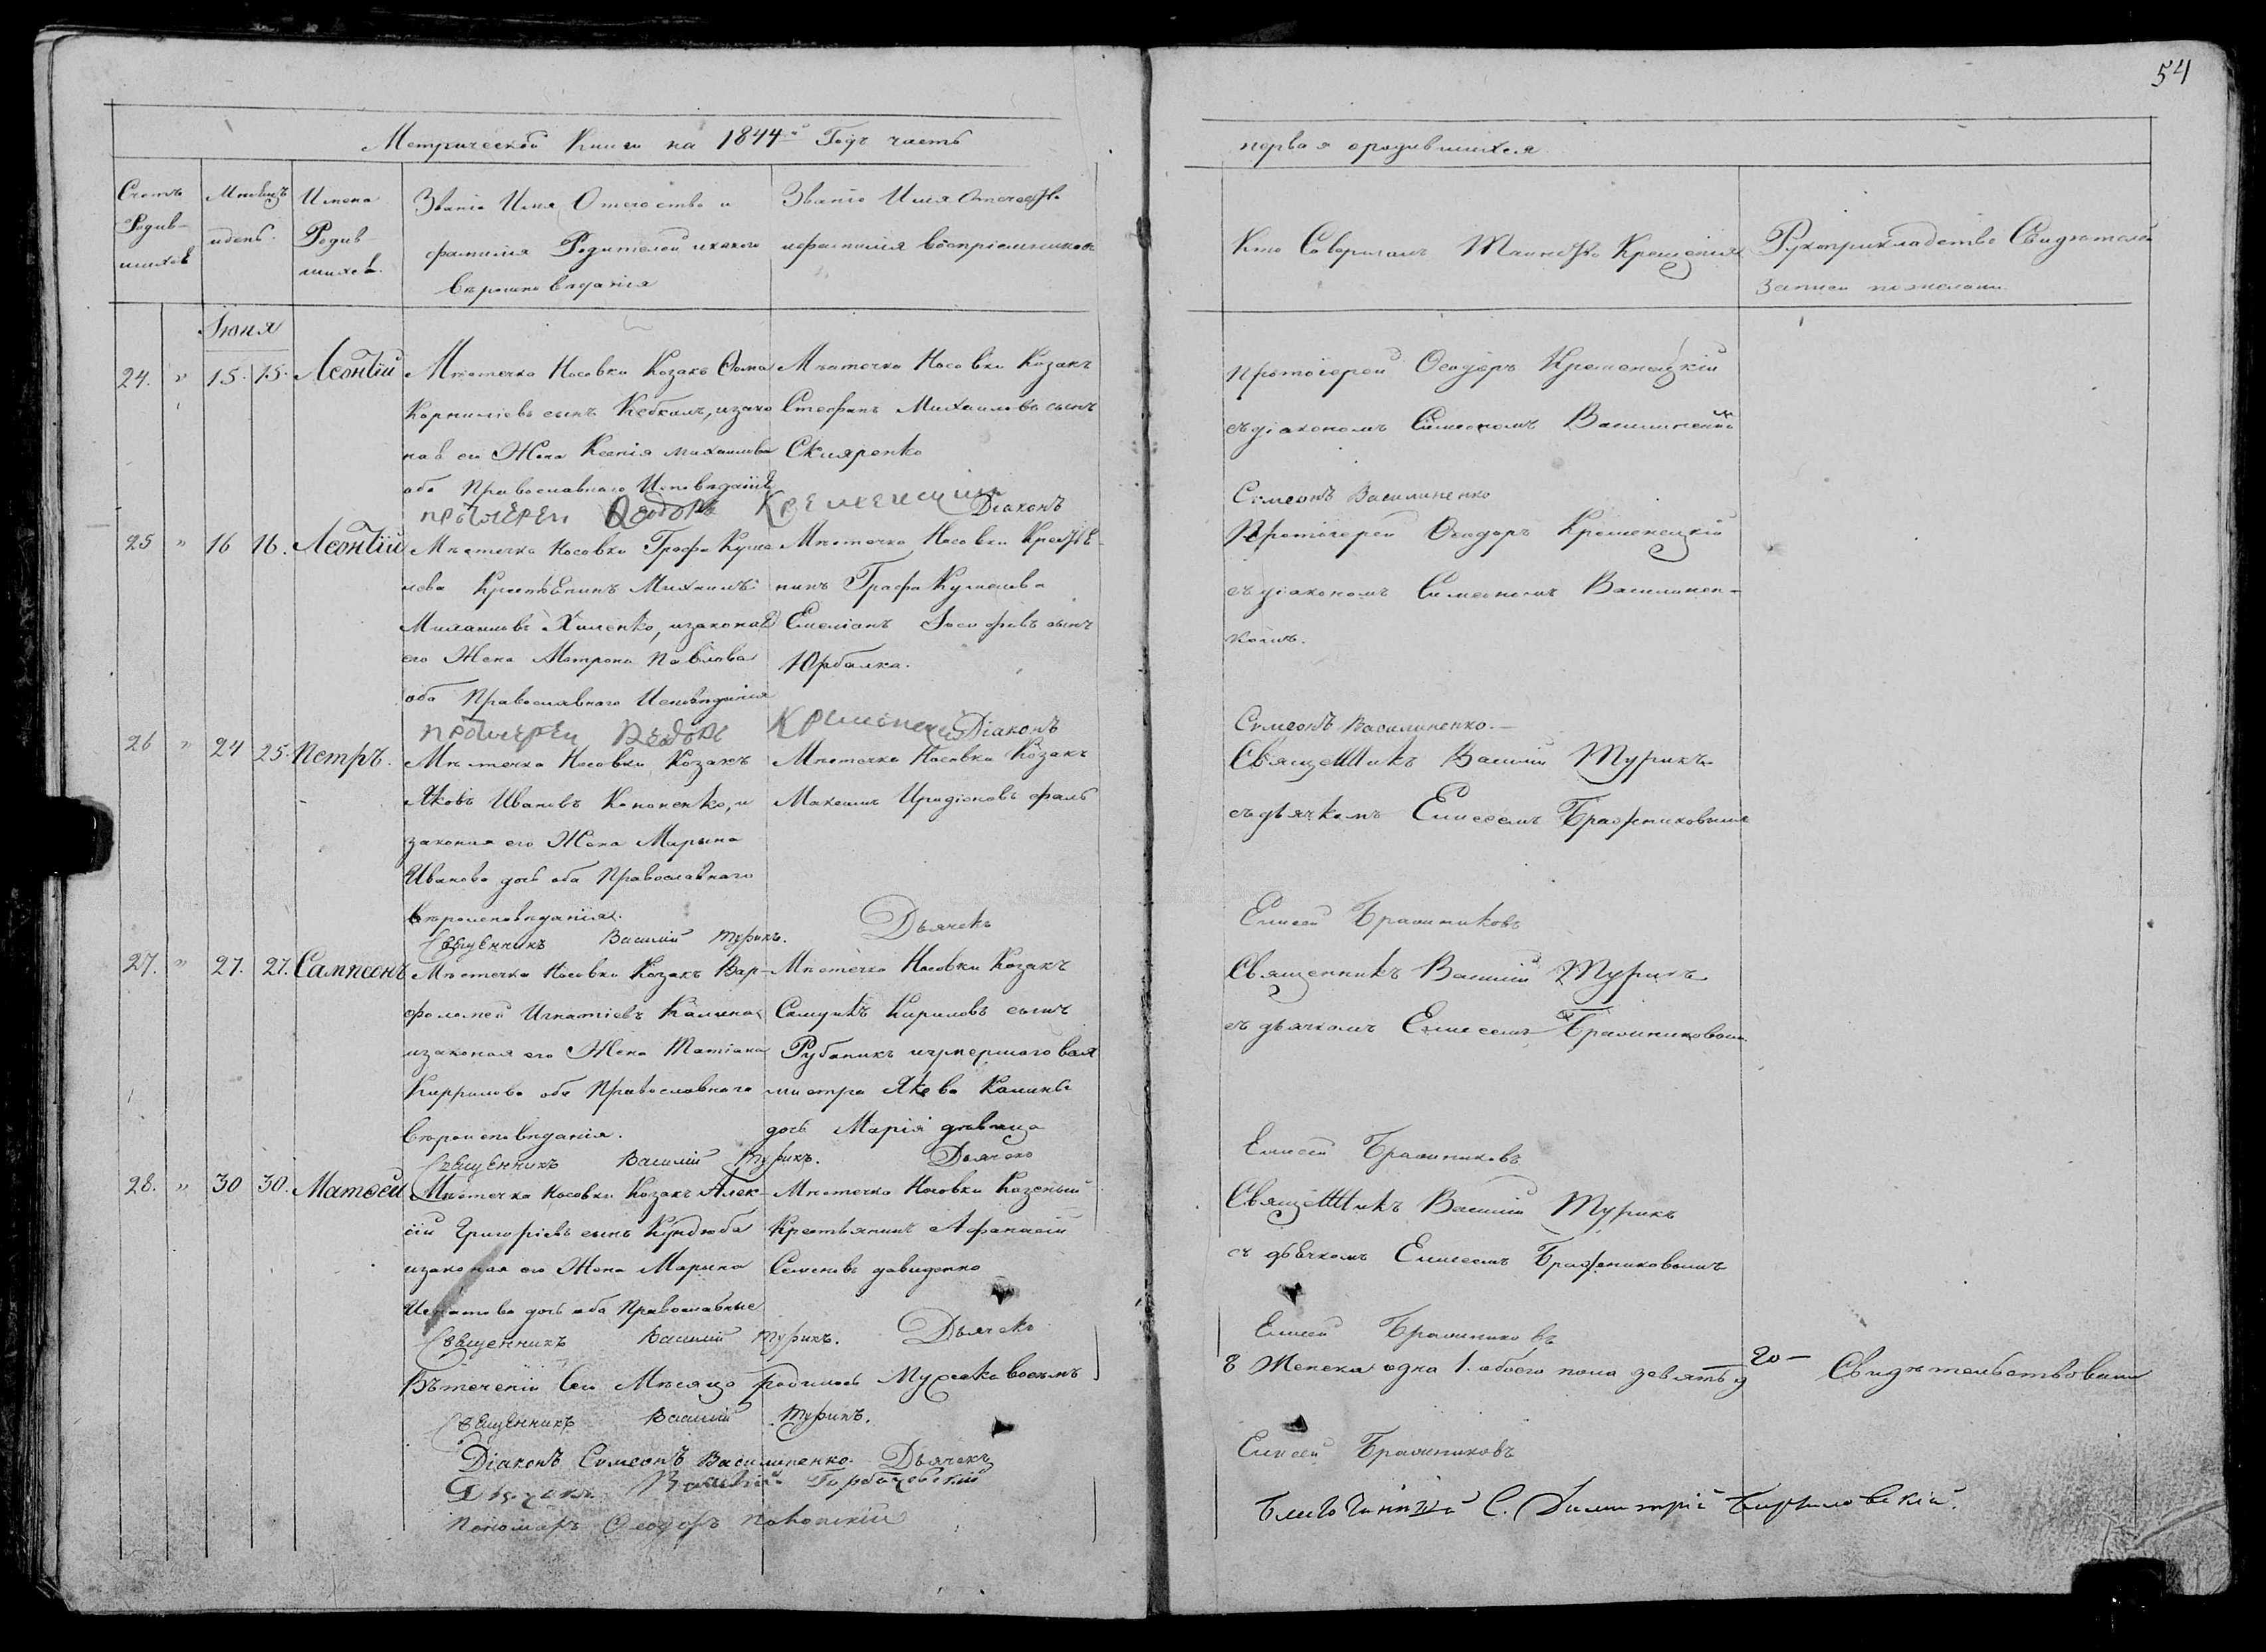 54
Метрической Книги на 1844й Годъ часть
первая ородившихся
Счетъ Родив- шихся
Мѣсяцъ идень.
Имена Родив- шихся.
Званіе Имя, Отечество и
фамилія Родителей икакого
вѣроисповѣданія
Званіе Имя Отечество
ифамилія воспріемниковъ
Кто Совершалъ Таинство Крещенія
Рукоприкладство Свидѣтелей
Записи пожеланію
Іюня
24. " 15. 15. Леонтій
Мѣстечка Носовки Козакъ Ѳома
Корниліевъ сынъ Кебкалъ, изако
ная его Жена Ксенія михаилова
оба Православнаго Исповѣданія
Мѣстечка Носовки Козакъ
Стефанъ Михаиловъ сынъ
Скляренко
протоіерей Ѳеодоръ Кременецкій
съдіакономъ Симеономъ Василиненко
протоіерей Ѳеодоръ Кременецкій Діаконъ
Симеонъ Василиненко
25 " 16 16. Леонтій
Мѣстечка Носовки Графа Куше
лева Крестьянинъ Михаилъ
Миллиновъ Хименко, изаконая
его Жена Матрона Павлова
оба Православнаго Исповѣданія
Мѣстечка Носовки Крестья-
нинъ Графа Кушелева
Емеліанъ Іосифовъ сынъ
Протоіерей Ѳеодоръ Кременецкій
съдіакономъ Симеономъ Василинен-
комъ.
протоіерей Ѳеодоръ Кременецкій Діаконъ
Симеонъ Василиненко.
26 " 24 25. Петръ.
Мѣстечка Носовки Козакъ
Яковъ Ивановъ Кононенко, и
законая его Жена Марына
Иванова дочь оба Православнаго
вѣроисповѣданія.
Мѣстечка Носовки Козакъ
Максимъ Иридіоновъ
Священникъ Василій Турикъ
съдьячкомъ Елисеемъ Бражниковымъ
Священникъ Василій Турикъ. Дьячекъ
Елисей Бражниковъ
27. " 27. 27. Сампсонъ
Мѣстечка Носовки Козакъ Вар-
фоломей Игнатіевъ Калина
изаконая его Жена Татіана
Кирилова оба Православнаго
Вѣроисповѣданія.
Мѣстечка Носовки Козакъ
Самуилъ Кириловъ сынъ
Рубаникъ иумершаго вах
мистра Якова Калины
дочь Марія дѣвица
Священникъ Василій Турикъ
съ дьячкомъ Елисеемъ Бражниковымъ
Священникъ Василій Турикъ. Дьячекъ
Елисей Бражниковъ
28. " 30 30. Матѳей
Мѣстечка Носовки Козакъ Алек-
сій Григоріевъ сынъ Кундюба
изаконая его Жена Марына
Игнатова дочь оба Православные
Мѣстечка Носовки Казеный
Крестьянинъ Афанасій
Семеновъ давиденко
Священникъ Василій Турикъ
съ дьячкомъ Елисеемъ Бражниковымъ
Священникъ Василій Турикъ. Дьячекъ
Елисей Бражниковъ
Вътеченіи Сего Мѣсяца родилось Мужеска восемъ
8 Женска одна 1. обоего пола девять 9
Свидѣтельствовали
Священникъ Василій Турикъ.
Діаконъ Симеонъ Василиненко. Дьячекъ
Елисей Бражниковъ
Дьячекъ Василій Горбачевскій
Пономарь Ѳеодоръ
Благочинный С. Димитрій